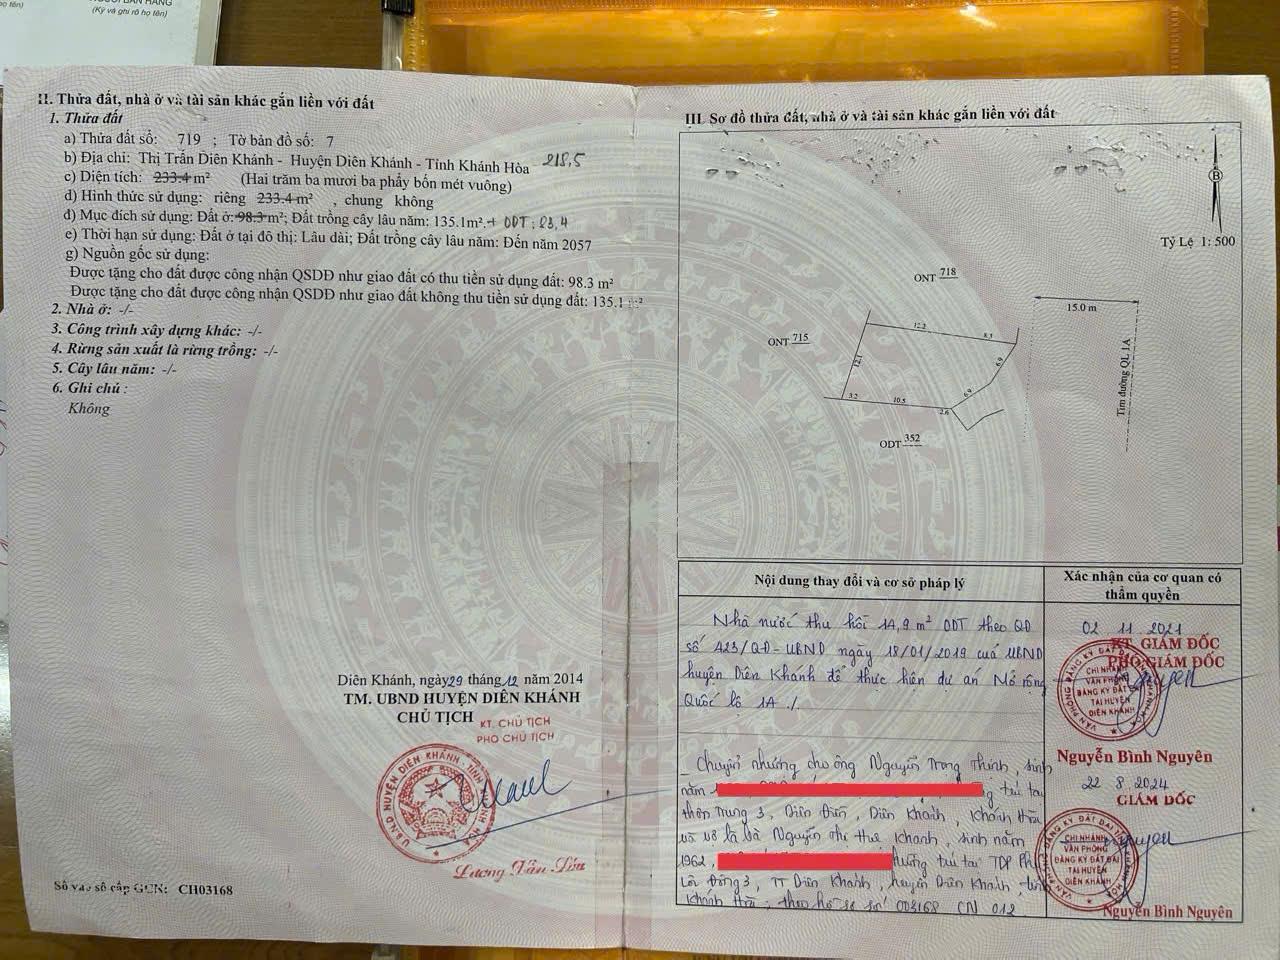 (Ký và ghi rõ họ tên)
II. Thửa đất, nhà ở và tài sản khác gắn liền với đất
1. Thửa đất
a) Thửa đất số: 719 ; Tờ bản đồ số: 7
b) Địa chỉ: Thị Trấn Diên Khánh - Huyện Diên Khánh - Tỉnh Khánh Hòa
218,5
c) Diện tích: 233.4 m² (Hai trăm ba mươi ba phẩy bốn mét vuông)
d) Hình thức sử dụng: riêng 233.4 m² , chung không
đ) Mục đích sử dụng: Đất ở: 98.3 m²; Đất trồng cây lâu năm: 135.1m². + ODT: 83,4
e) Thời hạn sử dụng: Đất ở tại đô thị: Lâu dài; Đất trồng cây lâu năm: Đến năm 2057
g) Nguồn gốc sử dụng:
Được tặng cho đất được công nhận QSDĐ như giao đất có thu tiền sử dụng đất: 98.3 m²
Được tặng cho đất được công nhận QSDĐ như giao đất không thu tiền sử dụng đất: 135.1 m²
2. Nhà ở: -/-
3. Công trình xây dựng khác: -/-
4. Rừng sản xuất là rừng trồng: -/-
5. Cây lâu năm: -/-
6. Ghi chú :
Không
Diên Khánh, ngày 29 tháng 12 năm 2014
TM. UBND HUYỆN DIÊN KHÁNH
CHỦ TỊCH
KT. CHỦ TỊCH
PHÓ CHỦ TỊCH
UBND HUYỆN DIÊN KHÁNH
Số vào sổ cấp GCN: CH03168
III. Sơ đồ thửa đất, nhà ở và tài sản khác gắn liền với đất
B
Tỷ Lệ 1: 500
ONT 718
15.0 m
ONT 715
12.2
8.5
12.1
6.9
6.9
3.2
10.5
2.6
Tim đường QL 1A
ODT 352
Nội dung thay đổi và cơ sở pháp lý
Xác nhận của cơ quan có thẩm quyền
Nhà nước thu hồi 14,9 m² ODT theo QĐ
số 423/QĐ-UBND ngày 18/01/2019 của UBND
huyện Diên Khánh để thực hiện dự án Mở rộng
Quốc lộ 1A ./.
02 11 2021
KT. GIÁM ĐỐC
PHÓ GIÁM ĐỐC
CHI NHÁNH
VĂN PHÒNG
ĐĂNG KÝ ĐẤT ĐAI
TẠI HUYỆN
DIÊN KHÁNH
Nguyễn Bình Nguyên
- Chuyển nhượng cho ông Nguyễn Trọng Thính, sinh
năm
trú tại
thôn Trung 3, Diên Điền, Diên Khánh, Khánh Hòa
và vợ là bà Nguyễn Thị Thu Khanh, sinh năm
1962,
thường trú tại TDP Phú
Lộc Đông 3, TT Diên Khánh, huyện Diên Khánh, tỉnh
Khánh Hòa; theo hồ sơ số 003168 CN 012.
22 8 2024
GIÁM ĐỐC
CHI NHÁNH
VĂN PHÒNG
ĐĂNG KÝ ĐẤT ĐAI
TẠI HUYỆN
DIÊN KHÁNH
Nguyễn Bình Nguyên